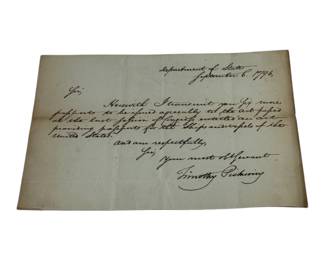 Department of State
September 6. 1796.
Sir,
Herewith I transmit you Six more
passports to be issued agreeably to the act passed
at the last session of Congress entitled an Act
providing passports for the Ships and vessels of the
United States.
and am respectfully,
Sir,
Your most obt servant
Timothy Pickering